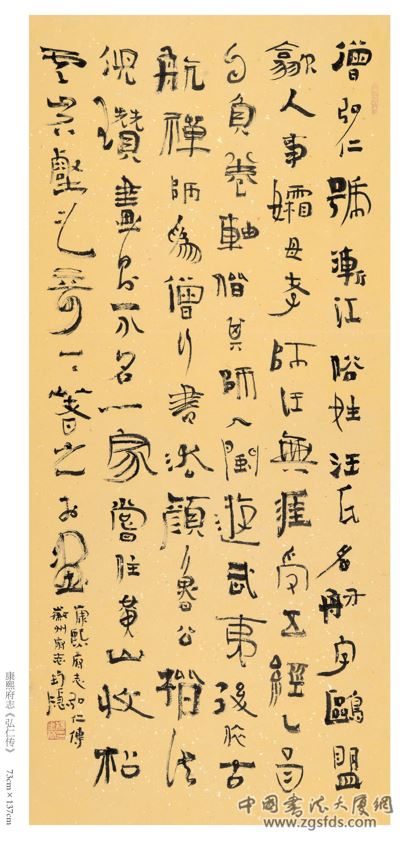 僧弘仁號漸江俗姓汪氏名舫字鷗盟
歙人事孀母孝師汪無涯受五經已而
自負卷軸偕其師入閩遊武夷後從古
航禪師為僧行書法顏魯公楷法
倪瓚畫不名一家嘗住黃山收松
雲岩壑之奇一一著之於畫
康熙府志弘仁傳
徽州府志
康熙府志《弘仁传》 73cm×137cm
中國書法大厦網
www.zgsfds.com